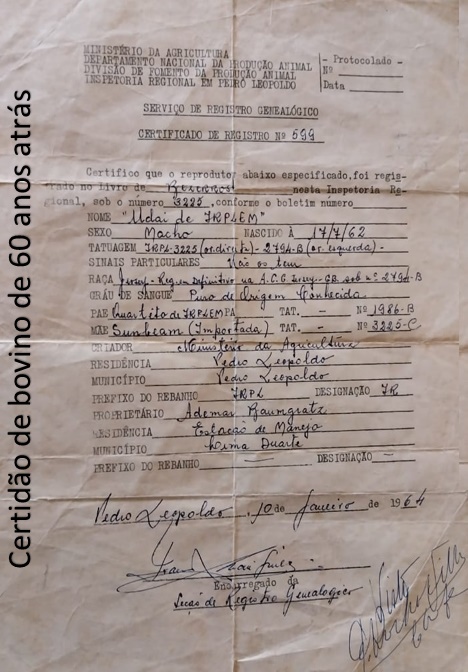 Certidão de bovino de 60 anos atrás
MINISTÉRIO DA AGRICULTURA
DEPARTAMENTO NACIONAL DA PRODUÇÃO ANIMAL
DIVISÃO DE FOMENTO DA PRODUÇÃO ANIMAL
INSPETORIA REGIONAL EM PEDRO LEOPOLDO
- Protocolado -
Nº
Data
SERVIÇO DE REGISTRO GENEALÓGICO
CERTIFICADO DE REGISTRO Nº 599
Certifico que o reprodutor abaixo especificado, foi regis-
trado no livro de Bezerros nesta Inspetoria Re-
gional, sob o número 3225, conforme o boletim número
NOME "Udai de IRPLEM"
SEXO Macho NASCIDO À 17/7/62
TATUAGEM IRPL-3225 (or. direita) - 2794-B (or. esquerda) -
SINAIS PARTICULARES Não os tem
RAÇA Jersey - Reg. em Definitivo na A.C.G. Jersey - GB. sob nº 2794-B
GRÁU DE SANGUE Puro de Origem Conhecida
PAE Quartito de IRPLEMPA TAT. - Nº 1986-B
MÃE Sunbeam (Importada) TAT. - Nº 3225-C
CRIADOR Ministério da Agricultura
RESIDÊNCIA Pedro Leopoldo
MUNICÍPIO Pedro Leopoldo
PREFIXO DO REBANHO IRPL DESIGNAÇÃO IR
PROPRIETÁRIO Ademar Baumgratz
RESIDÊNCIA Estação de Manejo
MUNICÍPIO Lima Duarte
PREFIXO DO REBANHO — DESIGNAÇÃO —
Pedro Leopoldo, 10 de Janeiro de 1964
Encarregado da
Secção de Registro Genealógico
Visto